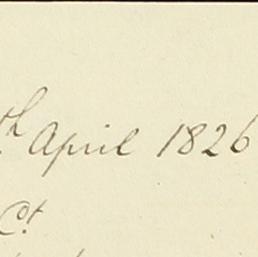 th April 1826
Ct